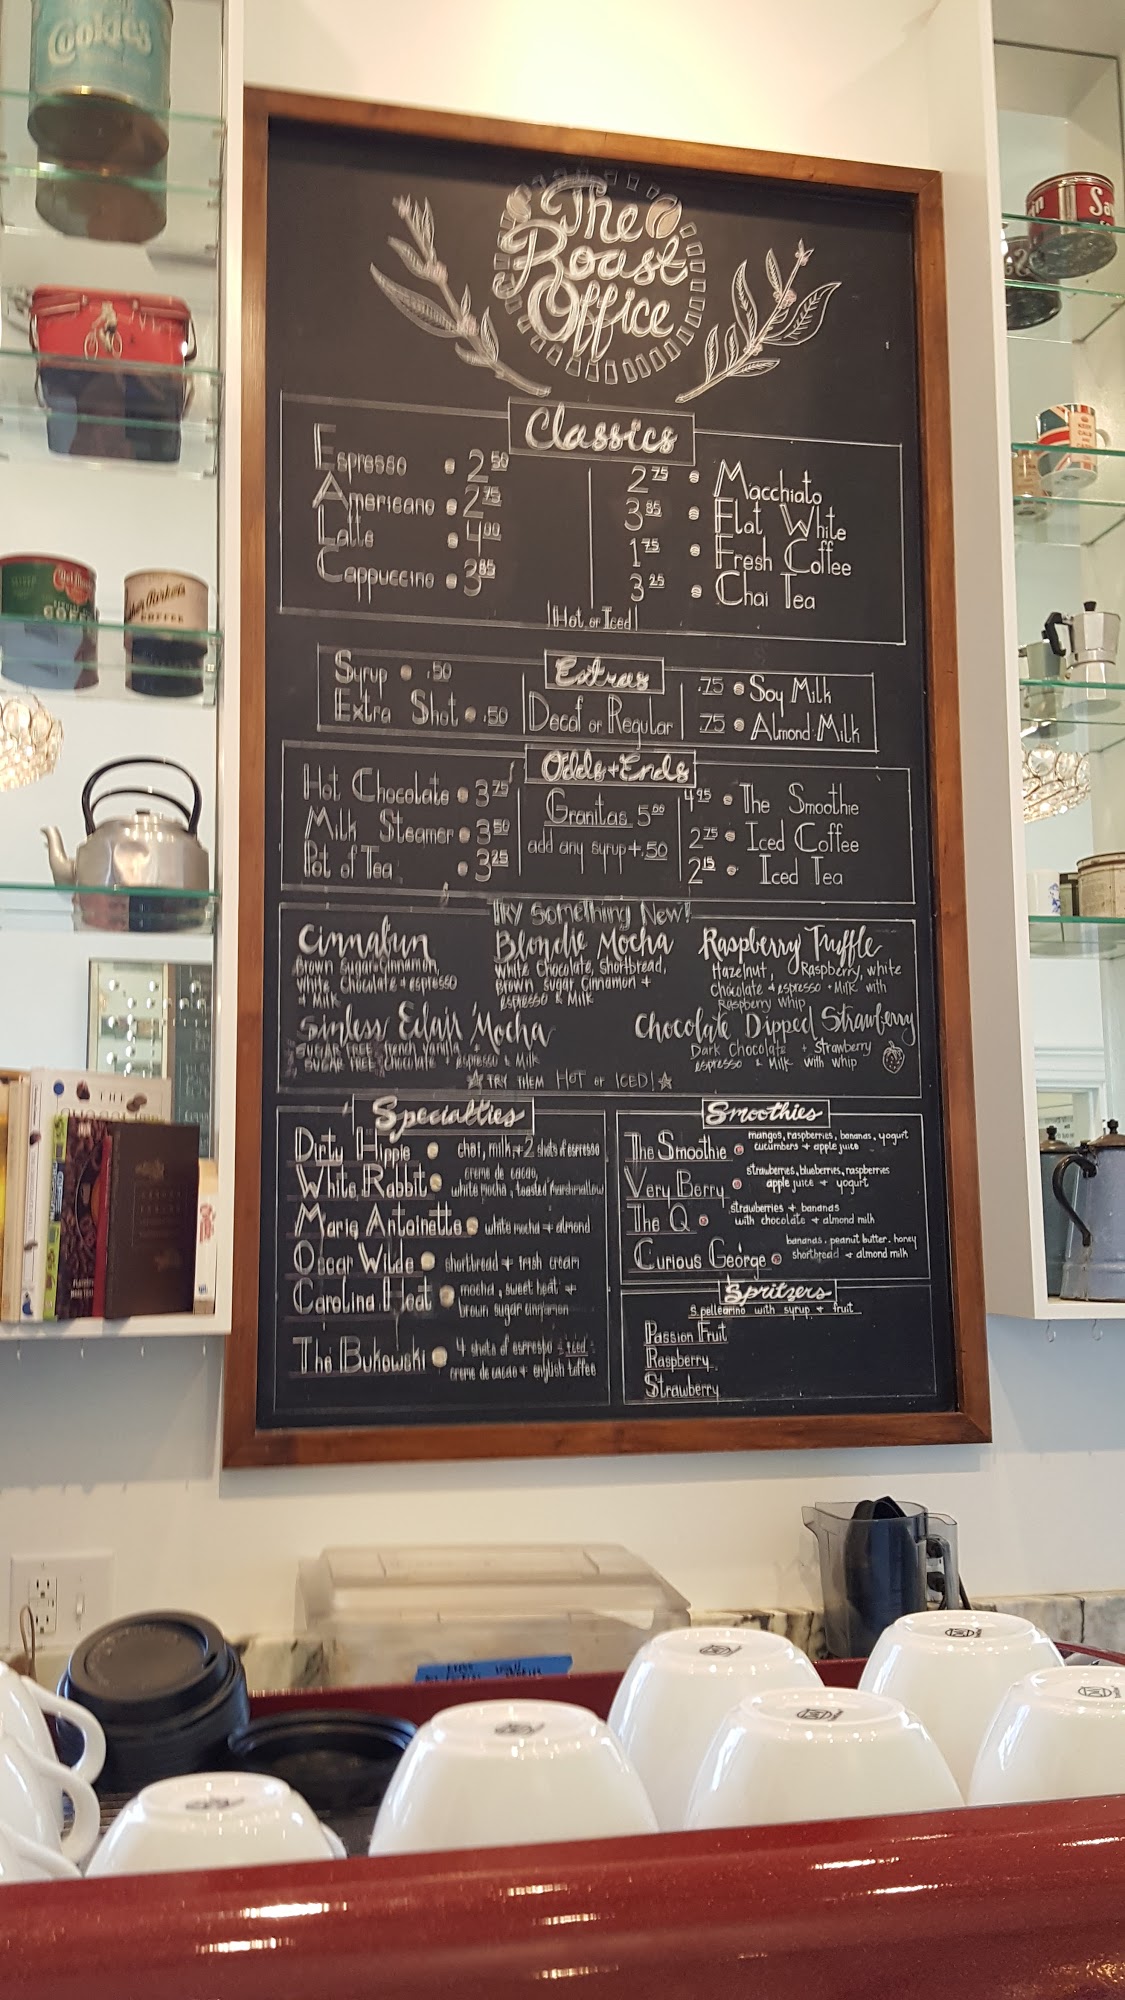 Cookies
The
Roast
Office
Classics
Espresso 2 50
Americano 2 75
Latte 4 00
Cappuccino 3 85
2 75 Macchiato
3 85 Flat White
1 75 Fresh Coffee
3 25 Chai Tea
Hot or Iced
Extras
Syrup .50
Extra Shot .50
Decaf or Regular
.75 Soy Milk
.75 Almond Milk
Odds + Ends
Hot Chocolate 3 75
Milk Steamer 3 50
Pot of Tea 3 25
Granitas 5 00
add any syrup + .50
4 95 The Smoothie
2 75 Iced Coffee
2 15 Iced Tea
TRY SomeThing New!
Cinnabun
Brown Sugar Cinnamon,
White Chocolate + espresso
+ Milk
Blondie Mocha
White Chocolate, Shortbread,
Brown Sugar Cinnamon +
espresso & Milk
Raspberry Truffle
Hazelnut, Raspberry, white
Chocolate + espresso + Milk with
Raspberry Whip
Sinless Eclair Mocha
SUGAR FREE French Vanilla +
SUGAR FREE Chocolate espresso & Milk
Chocolate Dipped Strawberry
Dark Chocolate + Strawberry
espresso & Milk with whip
TRY THEM HOT or ICED!
Specialties
Dirty Hippie chai, milk, + 2 shots of espresso
White Rabbit creme de cacao,
white mocha, toasted marshmallow
Marie Antoinette white mocha + almond
Oscar Wilde shortbread + Irish cream
Carolina Heat mocha, sweet heat +
brown sugar cinnamon
The Bukowski 4 shots of espresso iced
creme de cacao + english toffee
Smoothies
The Smoothie mangos, raspberries, bananas, yogurt
cucumbers + apple juice
Very Berry strawberries, blueberries, raspberries
apple juice + yogurt
The Q strawberries + bananas
with chocolate + almond milk
Curious George bananas, peanut butter, honey
shortbread + almond milk
Spritzers
S. pellegrino with syrup + fruit
Passion Fruit
Raspberry
Strawberry
KEEP
CALM
THE